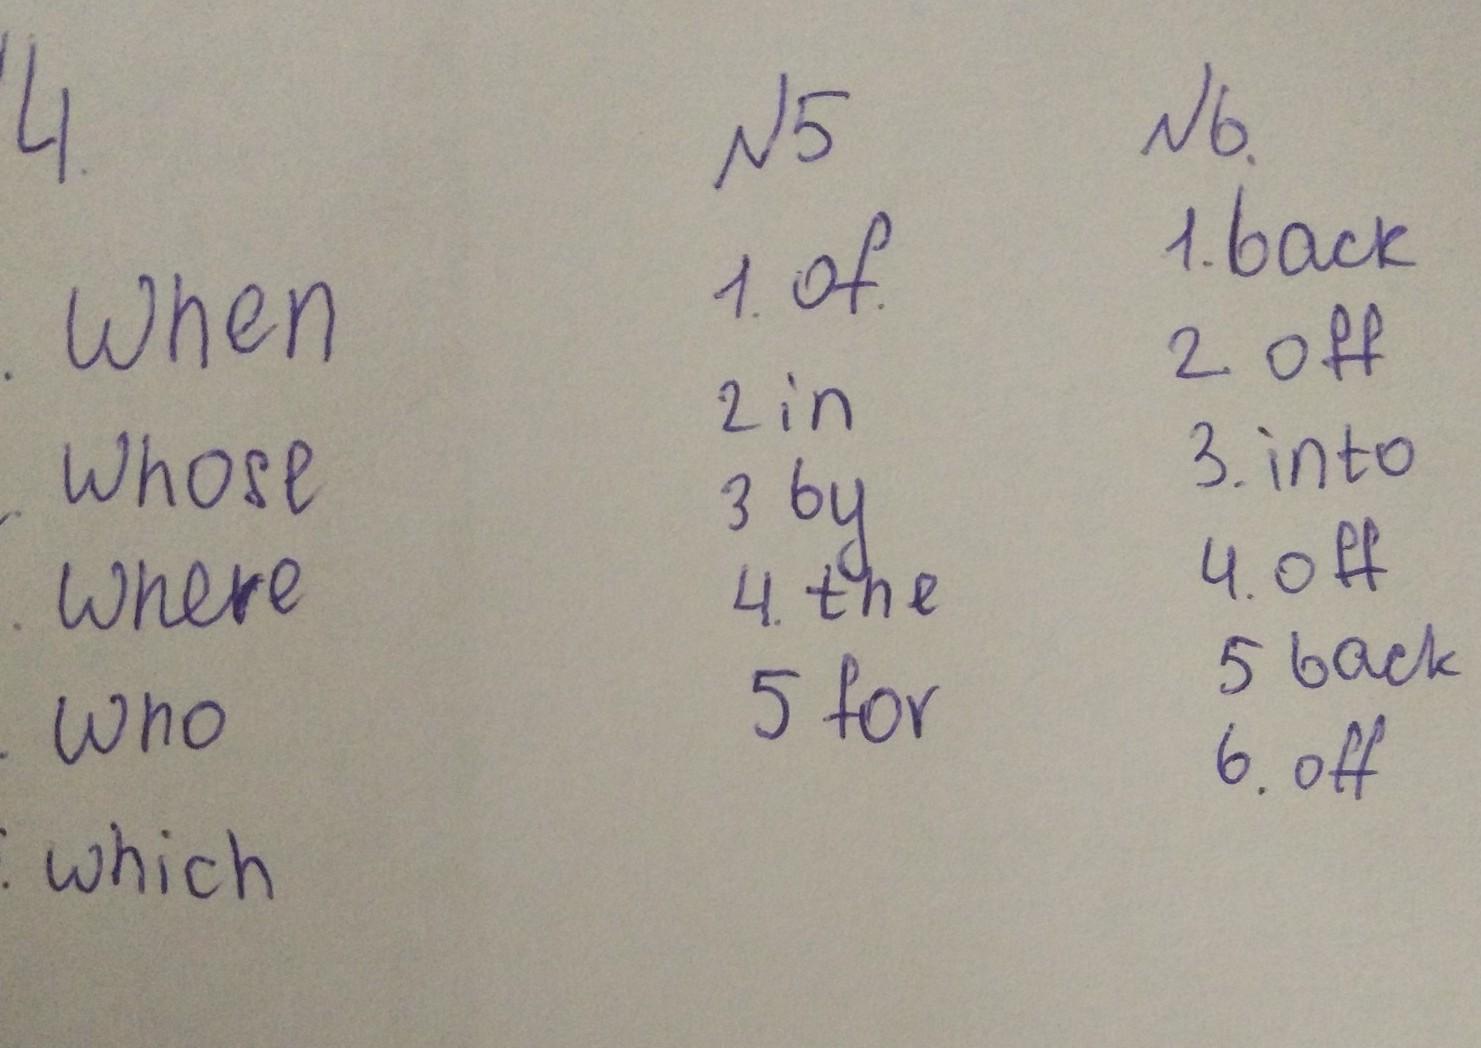 4.
When
Whose
Where
Who
which
N5
1. of.
2 in
3 by
4. the
5 for
N6.
1. back
2. off
3. into
4. off
5 back
6. off